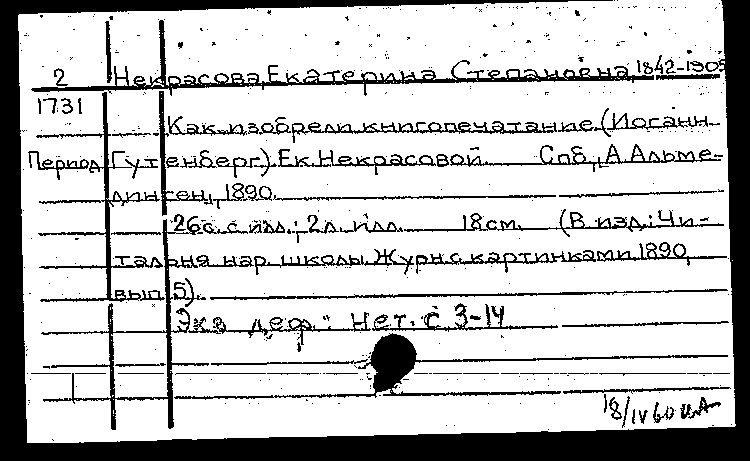 2 Некрасова, Екатерина Степановна, 1842-1905
1731
Как изобрели книгопечатание. (Иоганн
Период Гутенберг). Ек. Некрасовой. Спб., А. Альме-
динген, 1890.
26с. с илл.; 2 л. илл. 18см. (В изд.: Чи-
тальня нар. школы. Журн. с картинками. 1890,
вып. 5).
Экз. деф.: Нет. с. 3-14
18/IV 60